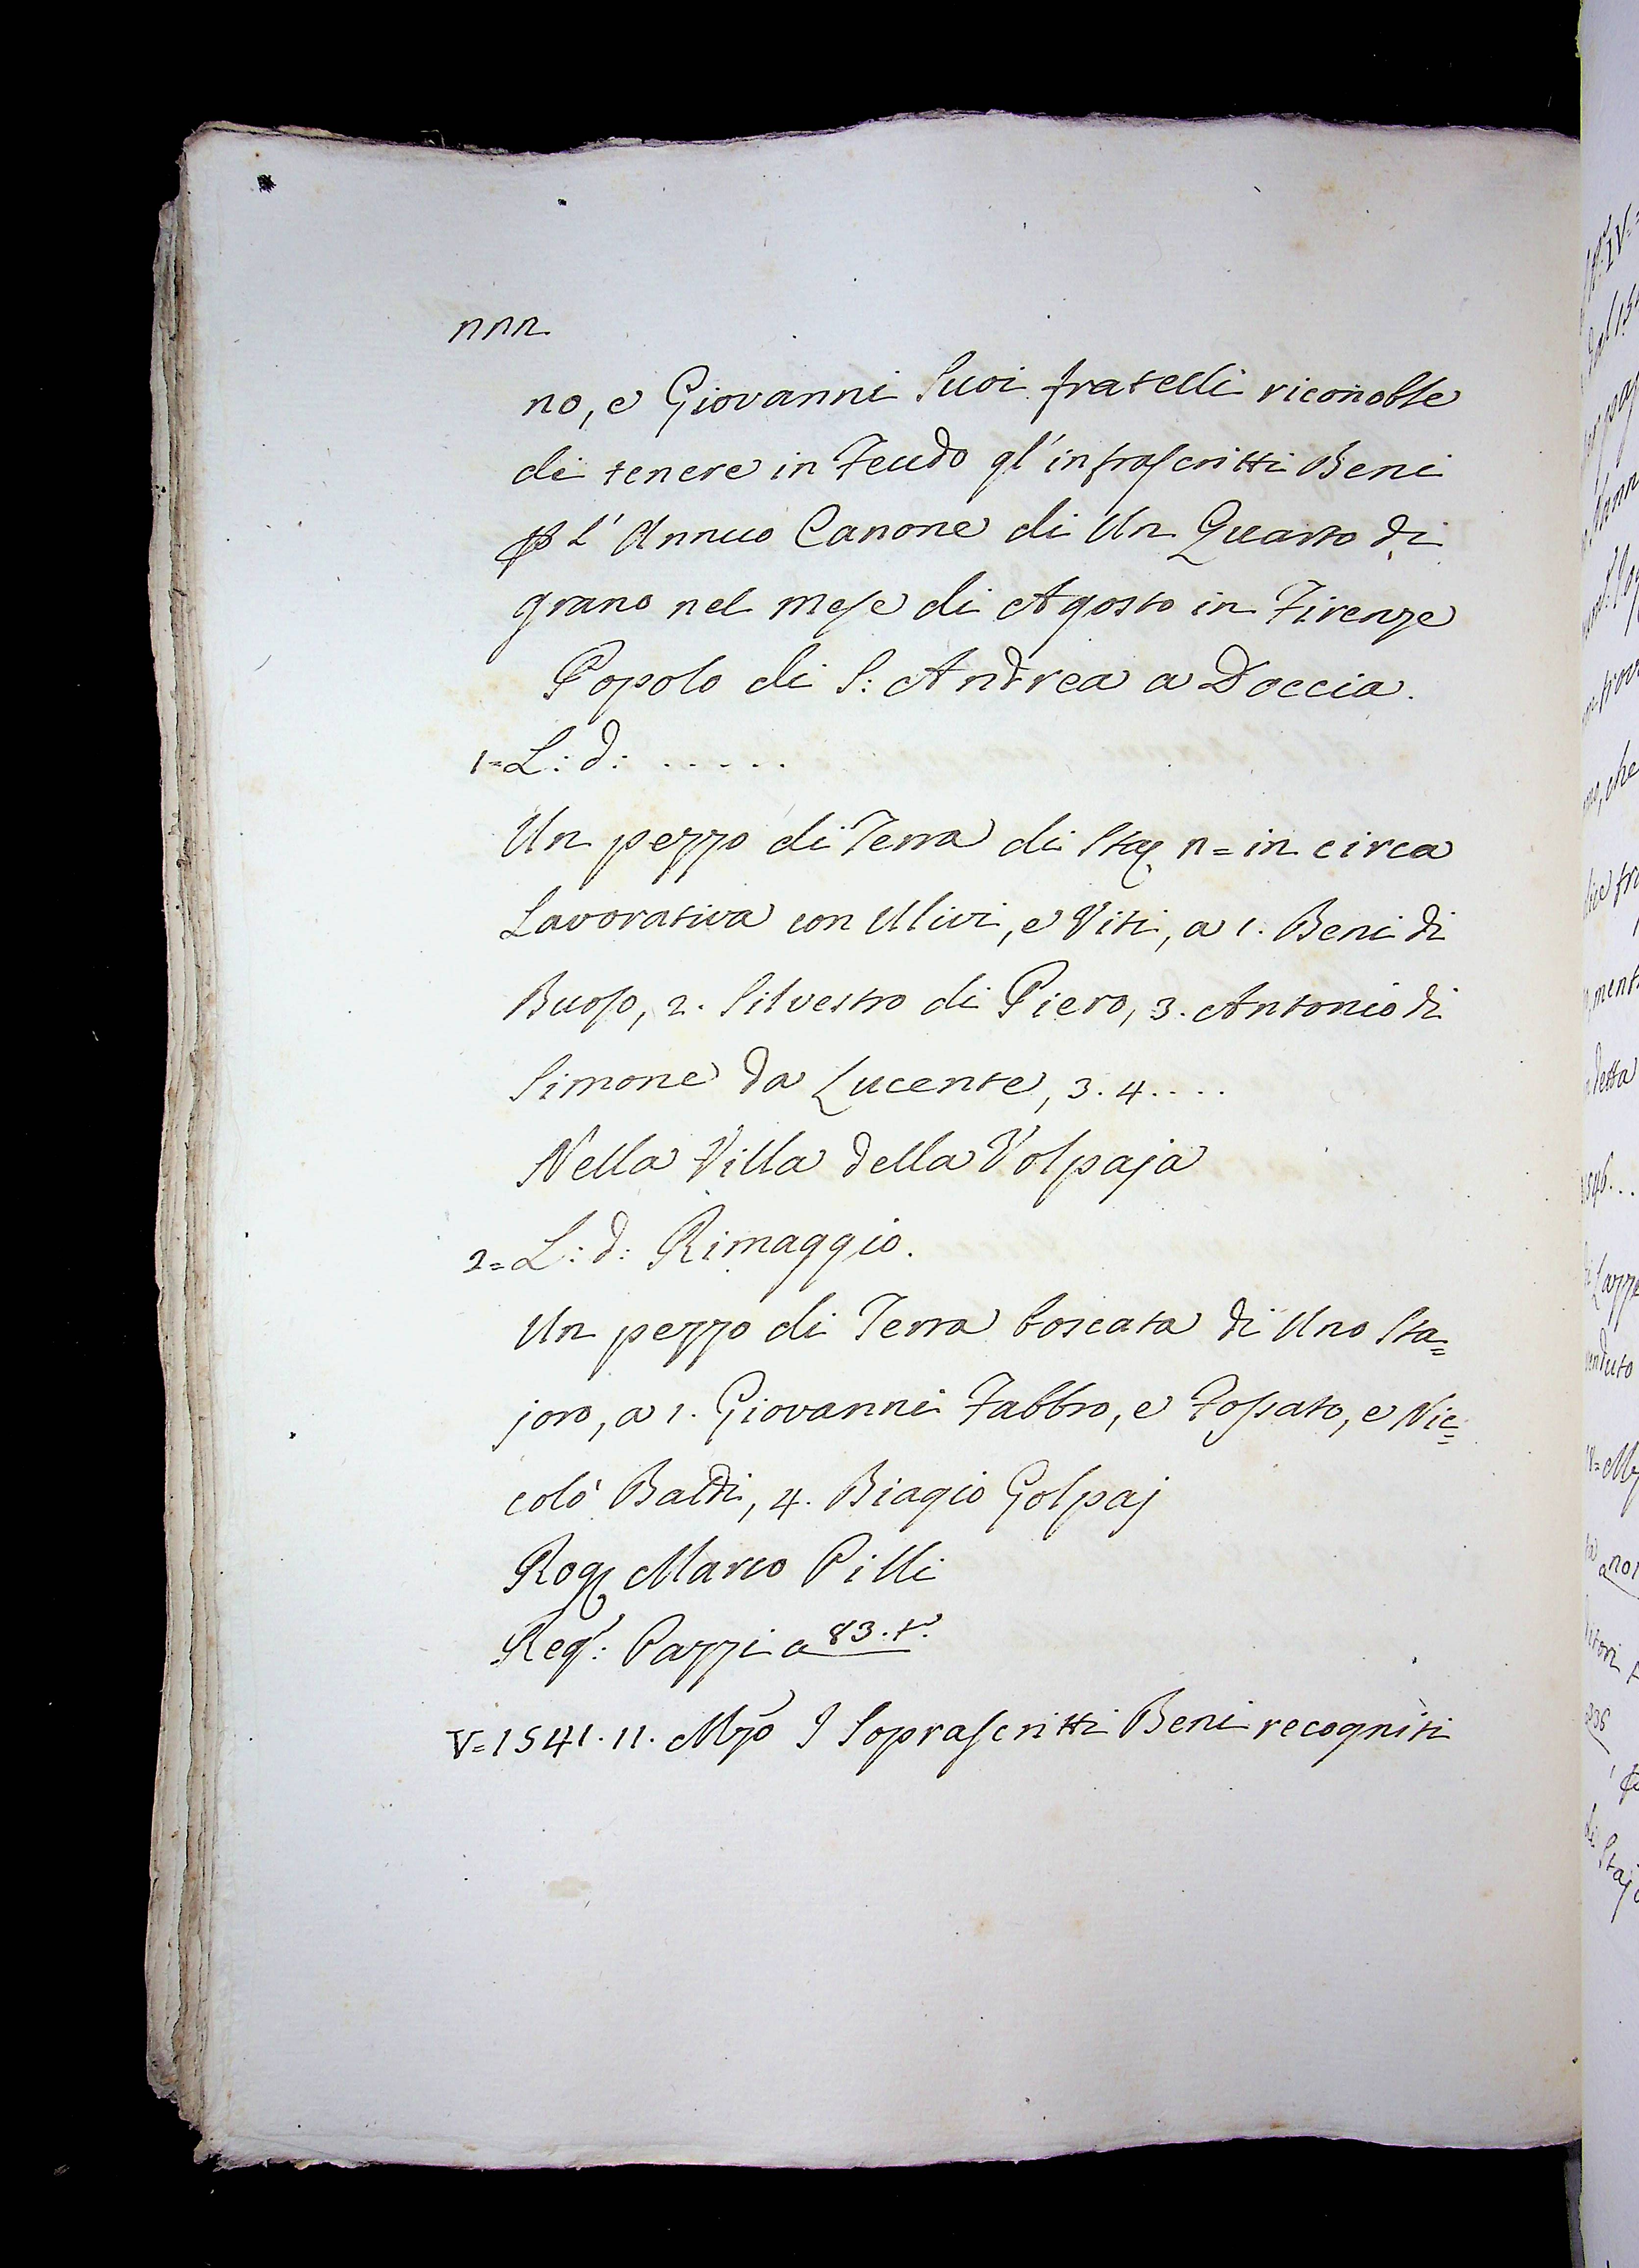 nnn
no, e Giovanni Suoi fratelli riconobbe
di tenere in Feudo gl'infrascritti Beni
p l'Annuo Canone di Un Quarto di
grano nel mese di Agosto in Firenze
Popolo di S: Andrea a Doccia.
1= L: d: .....
Un pezzo di Terra di Staj n= in circa
Lavorativa con Ulivi, e Viti, a 1. Beni di
Buoso, 2. Silvestro di Piero, 3. Antonio di
Simone da Lucente, 3. 4....
Nella Villa della Volpaja
2= L: d: Rimaggio.
Un pezzo di Terra boscata di Uno Sta=
joro, a 1. Giovanni Fabbro, e Fossato, e Nic=
colò Baldi, 4. Biagio Golpaj
Rog Marco Pilli
Reg.: Pazzi a 83. t.
V= 1541. 11. Mzo I Soprascritti Beni recogniti